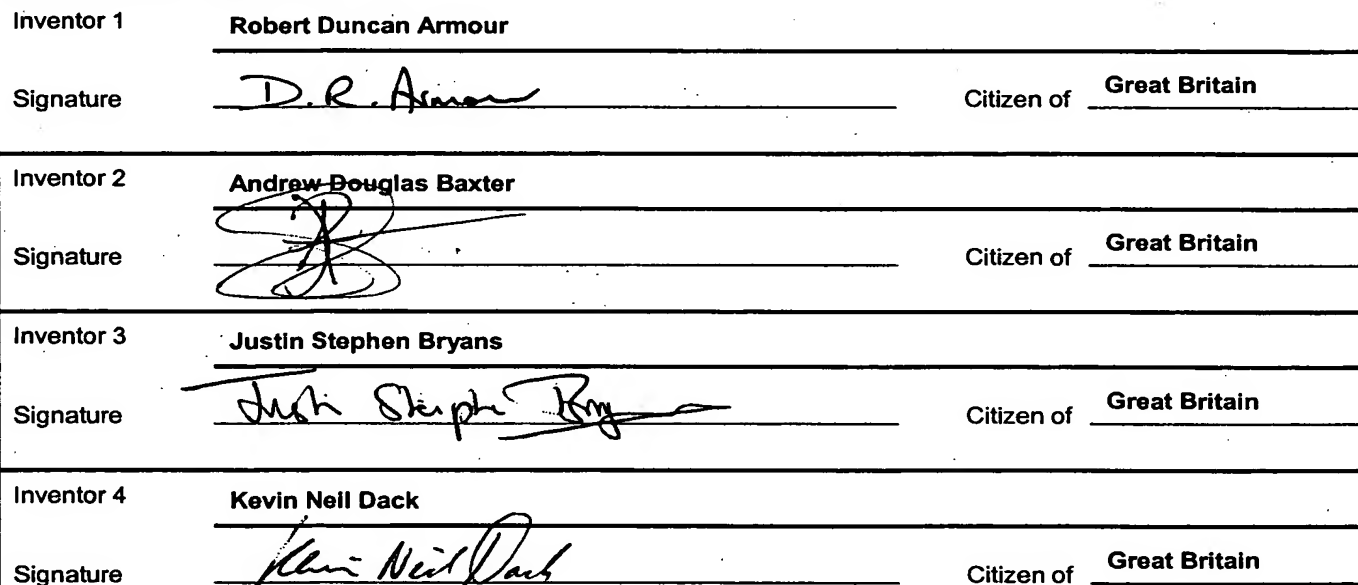 Inventor 1 Robert Duncan Armour
Signature D.R. Armour Citizen of Great Britain
Inventor 2 Andrew Douglas Baxter
Signature Citizen of Great Britain
Inventor 3 Justin Stephen Bryans
Signature Justin Stephen Bry Citizen of Great Britain
Inventor 4 Kevin Neil Dack
Signature Kevin Neil Dack Citizen of Great Britain